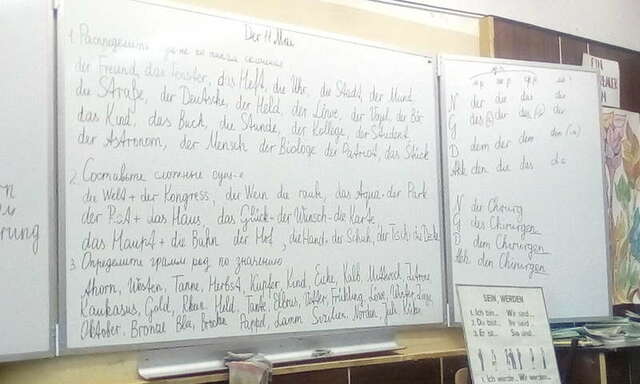 Der 11 Mai
1. Распределить по типам склонения
der Freund, das Fenster, das Heft, die Uhr, die Stadt, der Mund
die Straße, der Deutsche, der Held, der Löwe, der Vogel, der Bär
das Kind, das Buch, die Stunde, der Kollege, der Student
der Astronom, der Mensch der Biologe der Patriot, das Stück
2. Составьте сложные сущ-е
die Welt + der Kongress, der Wein die raute, das Aqua - der Park
der Rat + das Haus das Glück - der Wunsch - die Karte
das Haupt + die Bahn der Hof, die Hand + der Schuh, der Tisch + die Decke
3. Определите грамм род по значению
Ahorn, Westen, Tanne, Herbst, Kupfer, Kind, Eiche, Kalb, Mittwoch,
Kaukasus, Gold, Held, Tante, Elbrus, Ziffer, Frühling, Löwe, Winter,
Oktober, Bronze Blei, Brocken Pappel, Lamm Sizilien, Norden, Juli
N der die das die
G des der des der
D dem der dem den (n)
Akk den die das die
N der Chirurg
G des Chirurgen
D dem Chirurgen
Akk den Chirurgen
SEIN, WERDEN
1. Ich bin... Wir sind...
2. Du bist... Ihr seid...
3. Er ist... Sie sind...
Ich werde... Wir werden...
EIN